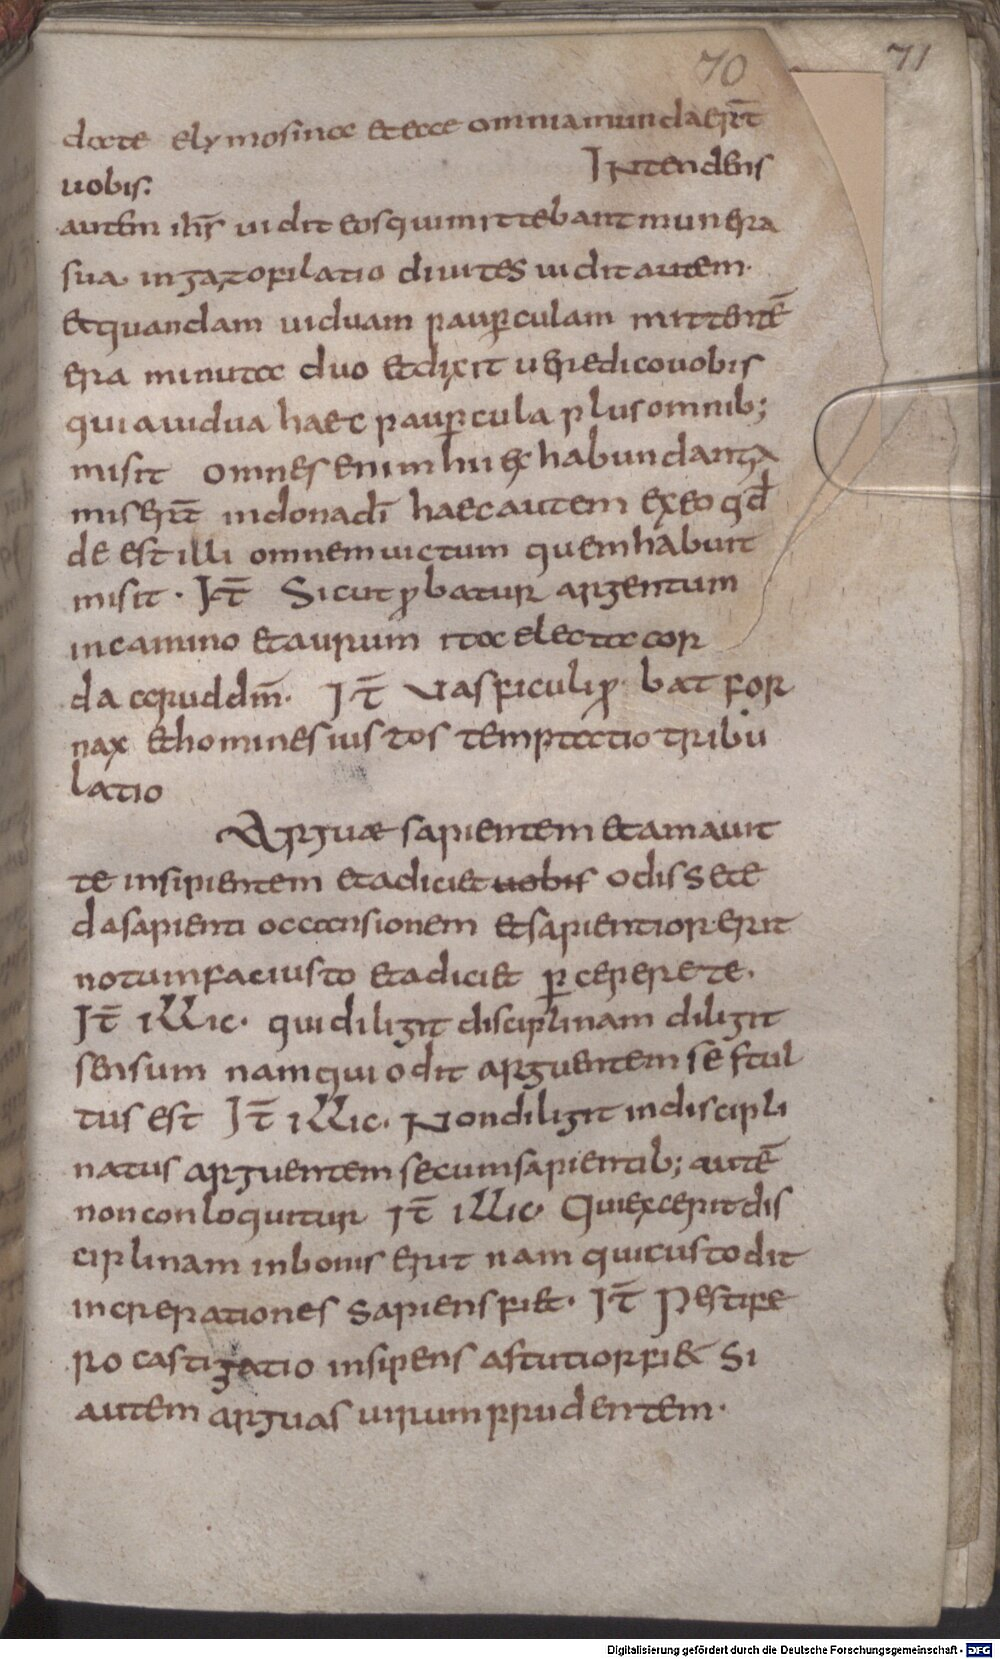 70
71
date elymosina et ecce omnia munda er̄t
uobis. Intendens
autem ih̄s uidit eos qui mittebant munera
sua in gazofilatio diuites uidit autem.
et quandam uiduam paup̱culam mittentē
era minuta duo et dixit uere dico uobis
quia uidua haec paup̱cula plus omnib;
misit omnes enim hii ex habundantia
miser̄t in dona dī haec autem ex eo qđ
de est illi omnem uictum quem habuit
misit. It̄ Sicut ꝓbatur argentum
in camino et aurum ita electa cor
da apud dm̄. It̄ Vas ficuli ꝓ bat for
nax et homines iustos temptatio tribu
latio
Arguæ sapientem et amauit
te insipientem et adiciet uobis odissete
da sapienti occansionem et sapientior erit
notum fac iusto et adiciet ꝑceperete.
It̄ illic. qui diligit disciplinam diligit
sensum nam qui odit arguentem se stul
tus est It̄ illic. Non diligit indiscipli
natus arguentem se cum sapientib; autē
non conloquitur It̄ illic. Qui excepit dis
ciplinam in bonis erit nam qui custodit
increpationes sapiens fiet. It̄ Pestife
ro castigatio insipens astutior fi& Si
autem arguas uirum prudentem.
Digitalisierung gefördert durch die Deutsche Forschungsgemeinschaft - DFG